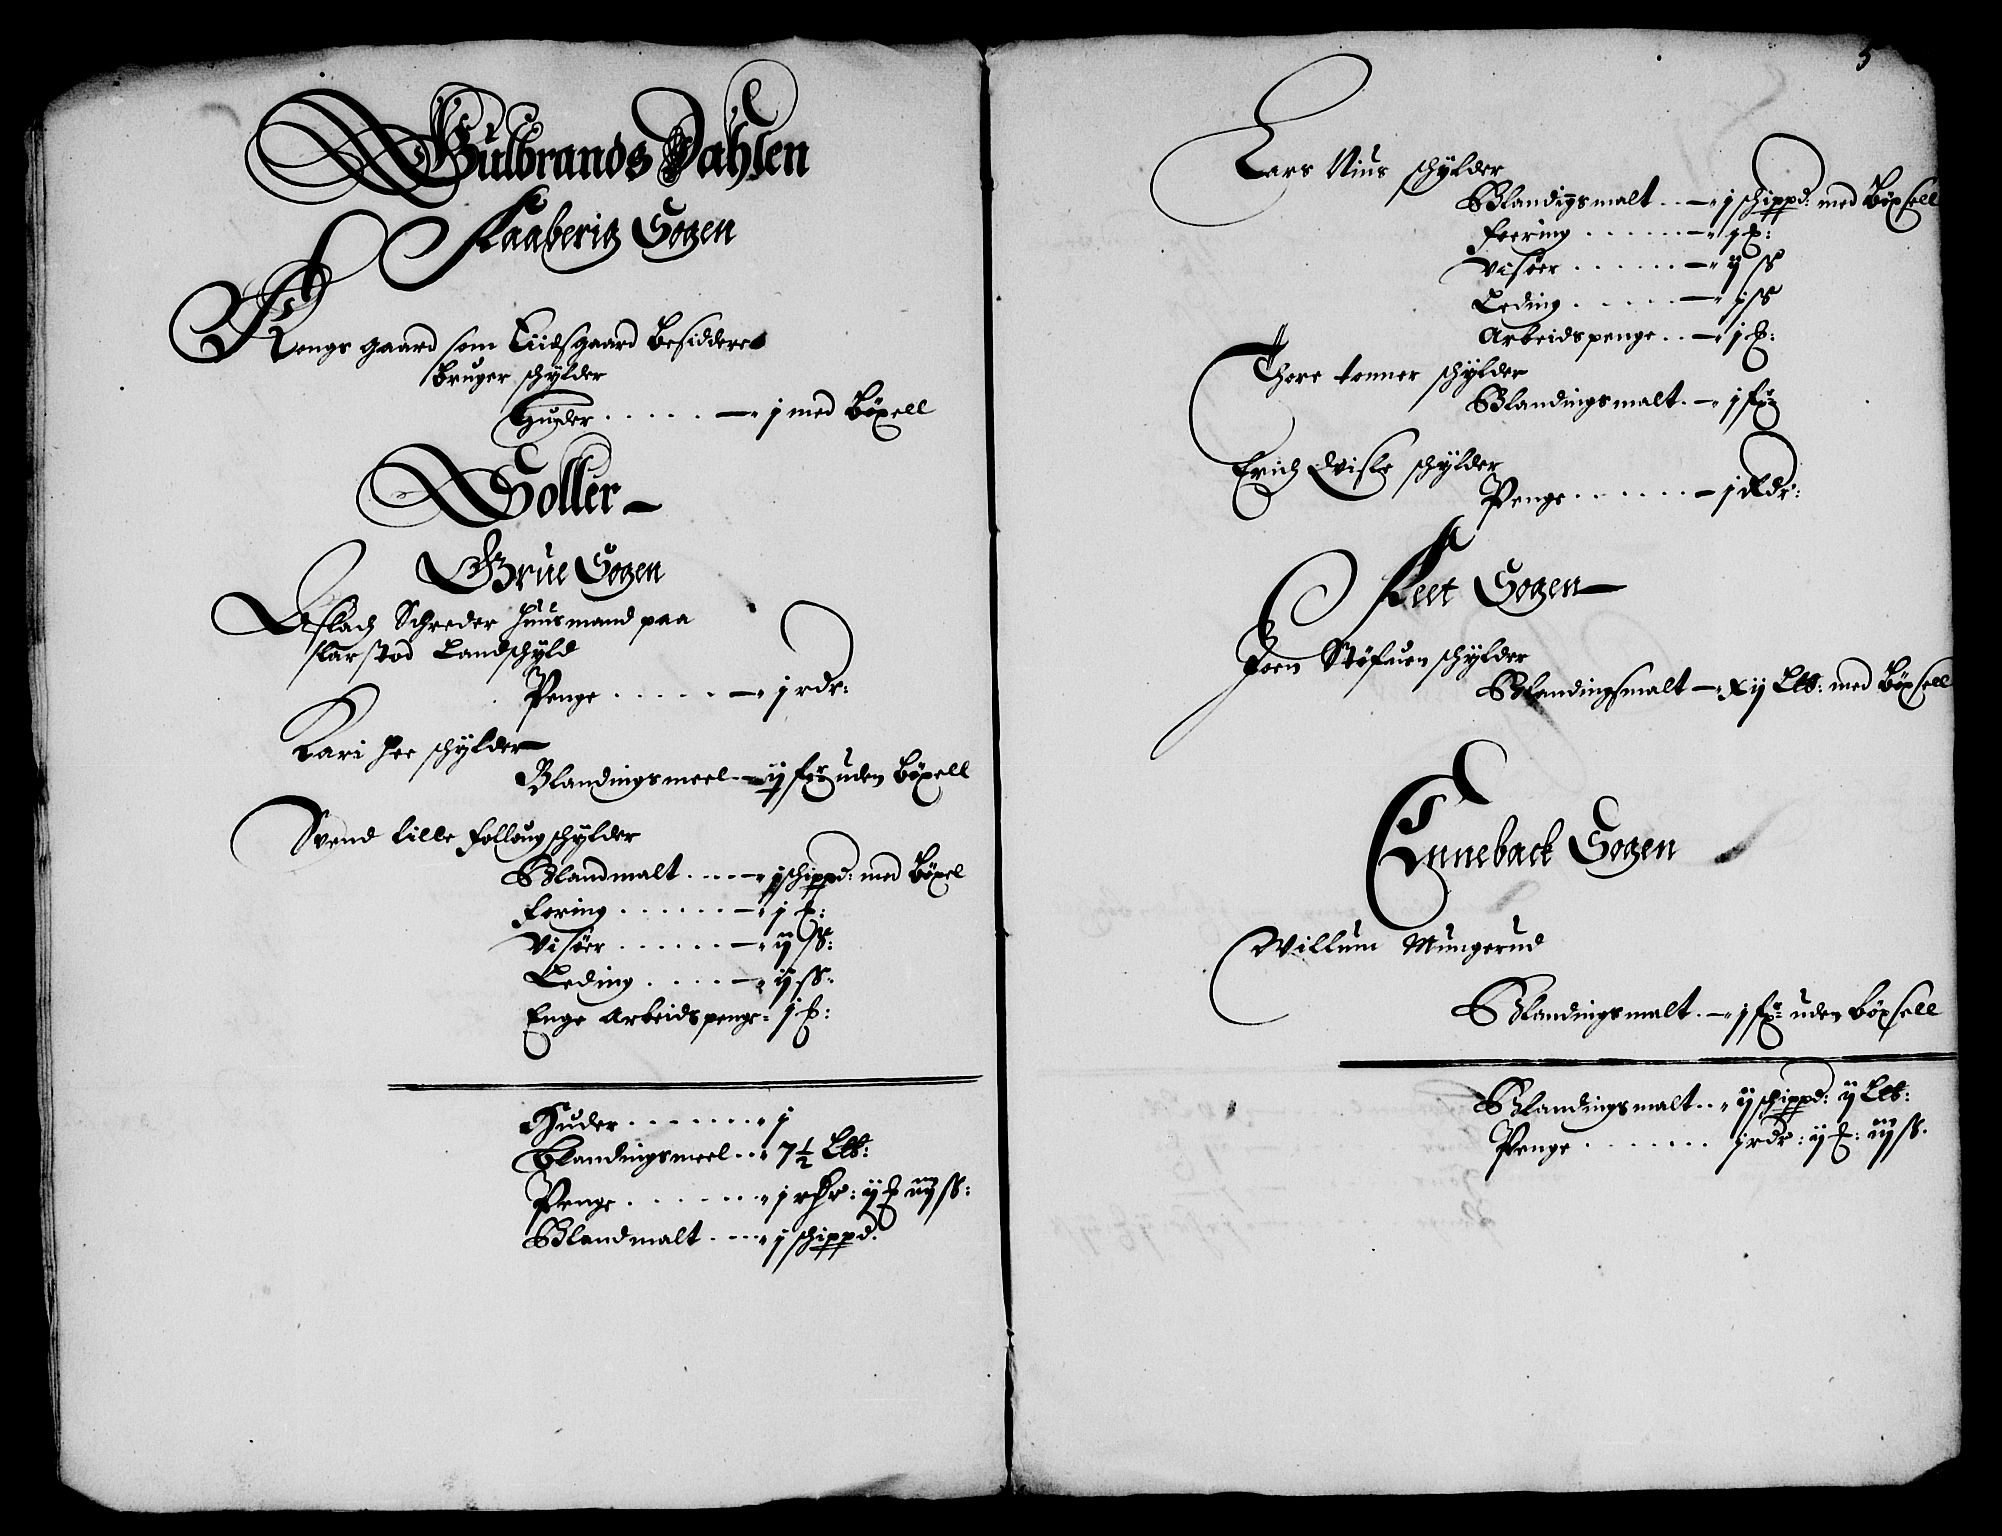 Gulbrands Dahlen
Faaberig Sogen
Rengs gaard som Eiidsgaard Besidder
bruger schylder
Huder . . . . . j med böxell
Soller
Grue Sogen
Aslach Schreder huusmand paa
Landschyld
Penge . . . . . j rdr:
Kari hee schylder
Blandingsmeel - ij fr: uden böxell
Svend lille folloug schylder
Blandmalt . . . . j schippd: med böxel
foring . . . . . . j
Visöer . . . . . . ij ss:
Leding . . . . . ij ss:
Enge Arbeidspenge - j
Huder . . . . . . . j
Blandingsmeel . . 7½ Ltt:
Penge . . . . . . j rdr: ij iiij ss:
Blandmalt . . . . j schippd:
5
Lars Nius schylder
Blandingsmalt . . j schippd: med Böxsell
foering . . . . . . j
Visöer . . . . . . ij ss
Leding . . . . . j ss
Arbeidspenge . . j
Thore tonner schylder
Blandingsmalt . j
Erich schylder
Penge . . . . . . j
Feet Sogen
Joen Stöfuen schylder
Blandingsmalt - xij Ltt: med Böxsell
Enneback Sogen
Willum Mungerud
Blandingsmalt . j uden böxsell
Blandingsmalt . . ij schippd: ij Ltt:
Penge . . . . . . . j rdr: ij iiij ss.